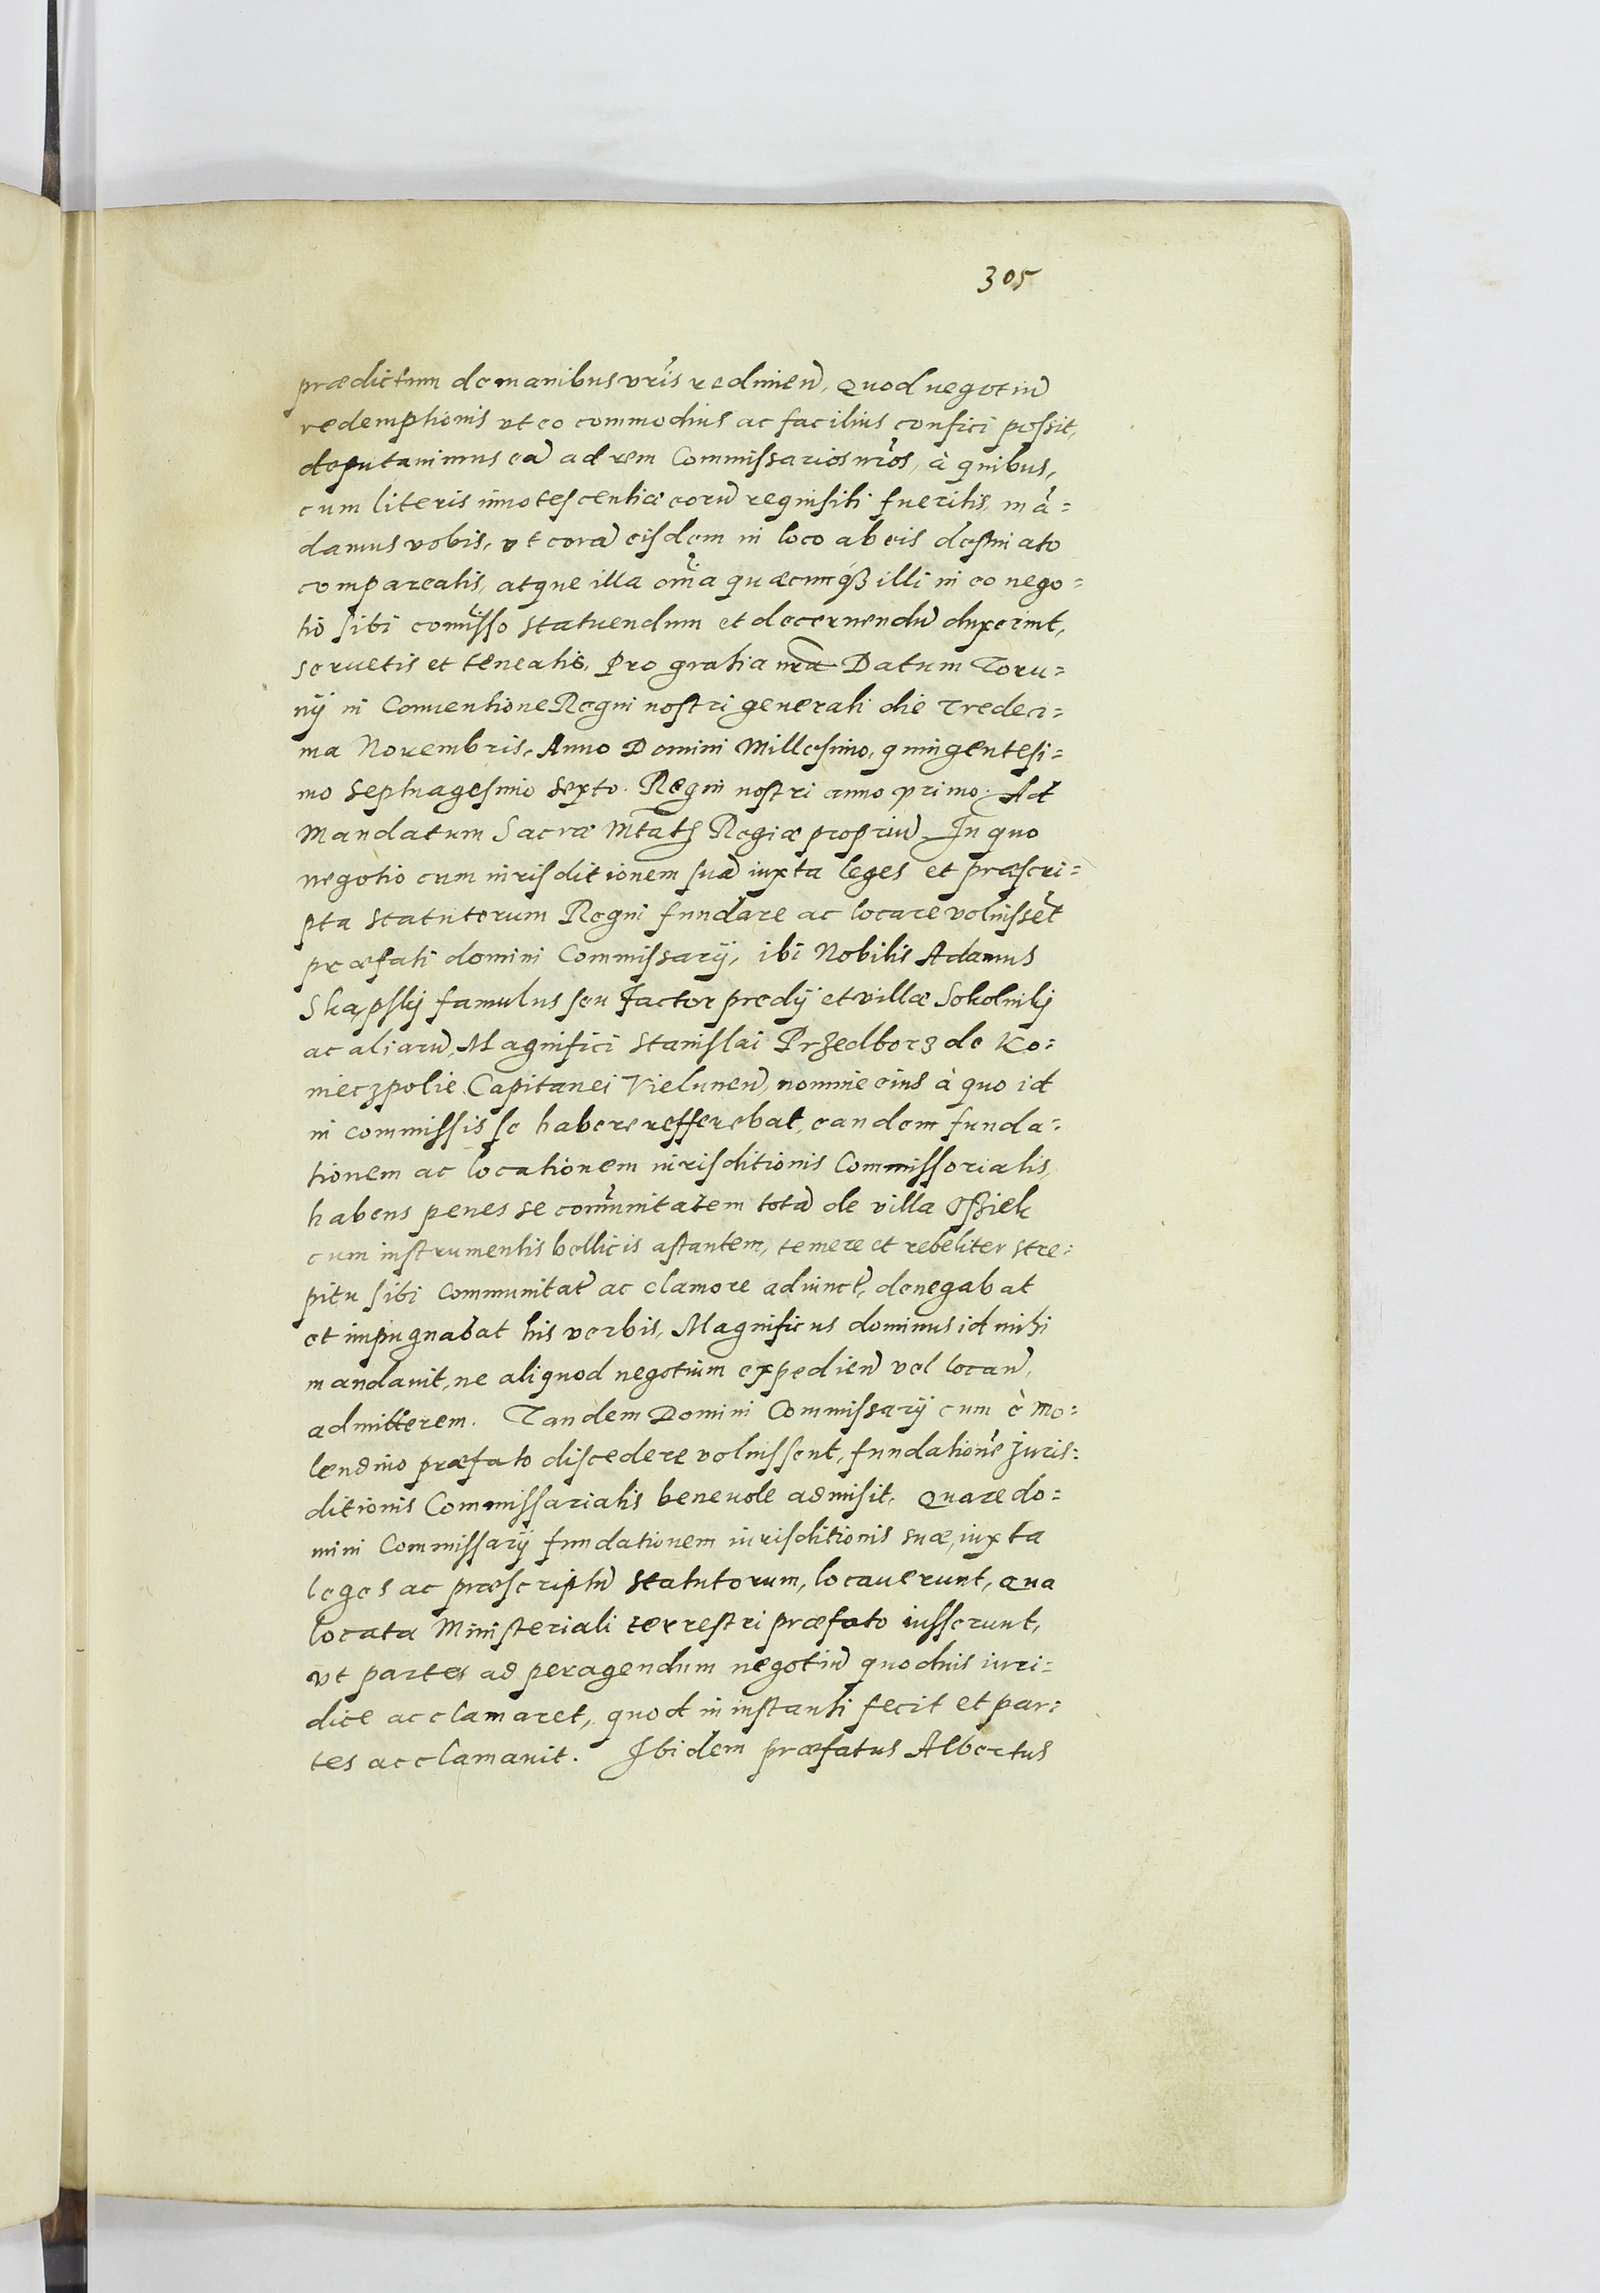 305
prædictum de manibus vr̃is redimeñ, Quod negotiũ
redemptionis vt eo commodius ac facilius confici possit,
deputauimus eã ad rem Commissarios nr̃os, à quibus,
cum literis innotescentiæ eorũ requisiti fueritis, mã=
damus vobis, vt corã eisdem in loco ab eis destinato
compareatis, atque illa om̃ia quæcunq̃ȝ illi in eo nego=
tio sibi com̃isso statuendum et decernendũ duxerint,
seruetis et teneatis, Pro gratia nr̃a Datum Toru=
nij in Conuentione Regni nostri generali die Tredeci=
ma Nouembris, Anno Domini Millesimo, quingentesi=
mo Septuagesimo Sexto. Regni nostri anno primo. Ad
Mandatum Sacræ Mtãtis Regiæ propriũ In quo
negotio cum iurisditionem suã iuxta leges et præscri=
pta statutorum Regni fundare ac locare voluissẽt
præfati domini Commissarij, ibi Nobilis Adamus
Skapskij famulus seu Factor predij et villæ Sokolnikj
ac aliarũ, Magnifici Stanislai Przedborz de Ko=
nieczpolie Capitanei Vieluneñ, nomine eius à quo id
in commissis se habere refferebat, eandem funda=
tionem ac locationem iurisditionis Commissorialis,
habens penes se com̃unitatem totã de villa Ossiek
cum instrumentis bellicis astantem, temere et rebeliter stre=
pitu sibi Communitat̃ ac clamore adiunct̃, denegabat
et impugnabat his verbis, Magnificus dominus id mihi
mandauit, ne aliquod negotium expedieñ vel locañ,
admitterem. Tandem Domini Commissarij cum è mo=
lendino præfato discedere voluissent, fundationẽ Juris=
ditionis Commissarialis beneuole admisit, Quare do=
mini Commissarij fundationem iurisditionis suæ, iuxta
leges ac præscriptũ Statutorum, locauerunt, qua
locata Ministeriali terrestri præfato iusserunt,
vt partes ad peragendum negotiũ quoduis iuri=
dice acclamaret, quod in instanti fecit et par=
tes acclamauit. Ibidem præfatus Albertus